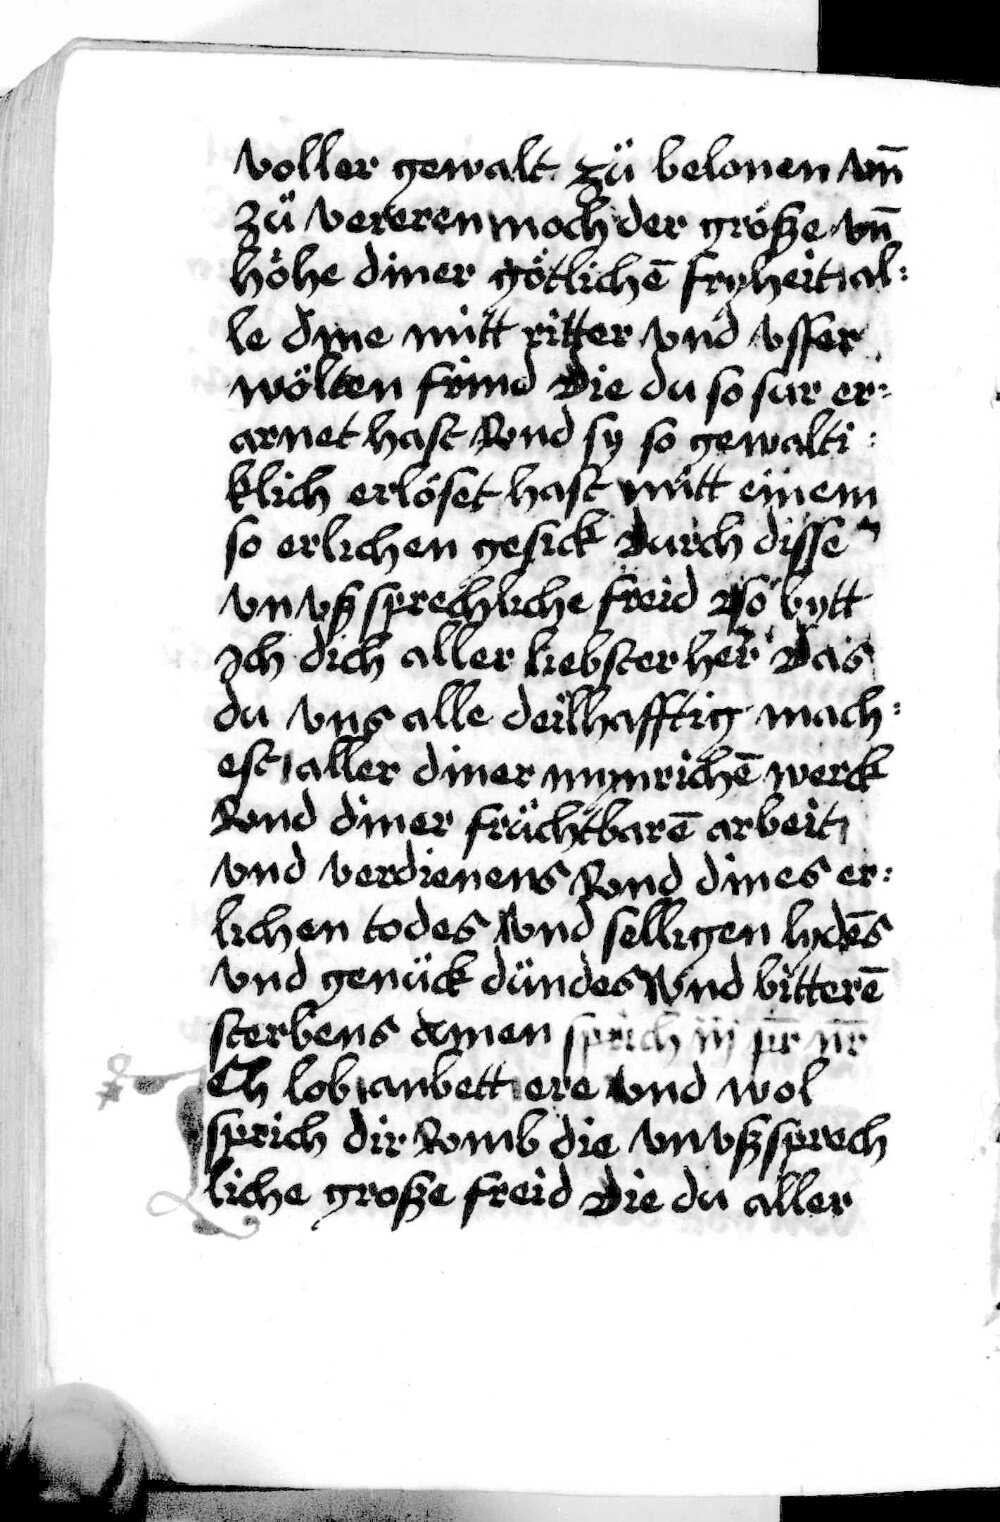 voller gewalt zü belonen vn̄
zü vereren noch der größe vn̄
höhe diner götlichē fryheit al:
le dine mitt ritter vnd vsser
wölten frind Die du so sur er:
arnet hast Vnd sy so gewalti:
klich erlöset hast mitt einem
so erlichen gesick Durch disse
vnvß sprechliche freid So bytt
Ich dich aller liebster her Das
du vns alle deilhafftig mach:
est aller diner mynrichē werck
Vnd diner früchtbarē arbeit
vnd verdienens Vnd dines er:
lichen todes Vnd selligen lydēs
vnd genück dündes Vnd bitterē
sterbens amen sprich iij pr̄ nr̄
Ich lob anbett ere vnd wol
sprich dir Vmb die vnvßsprech
liche große freid Die du aller